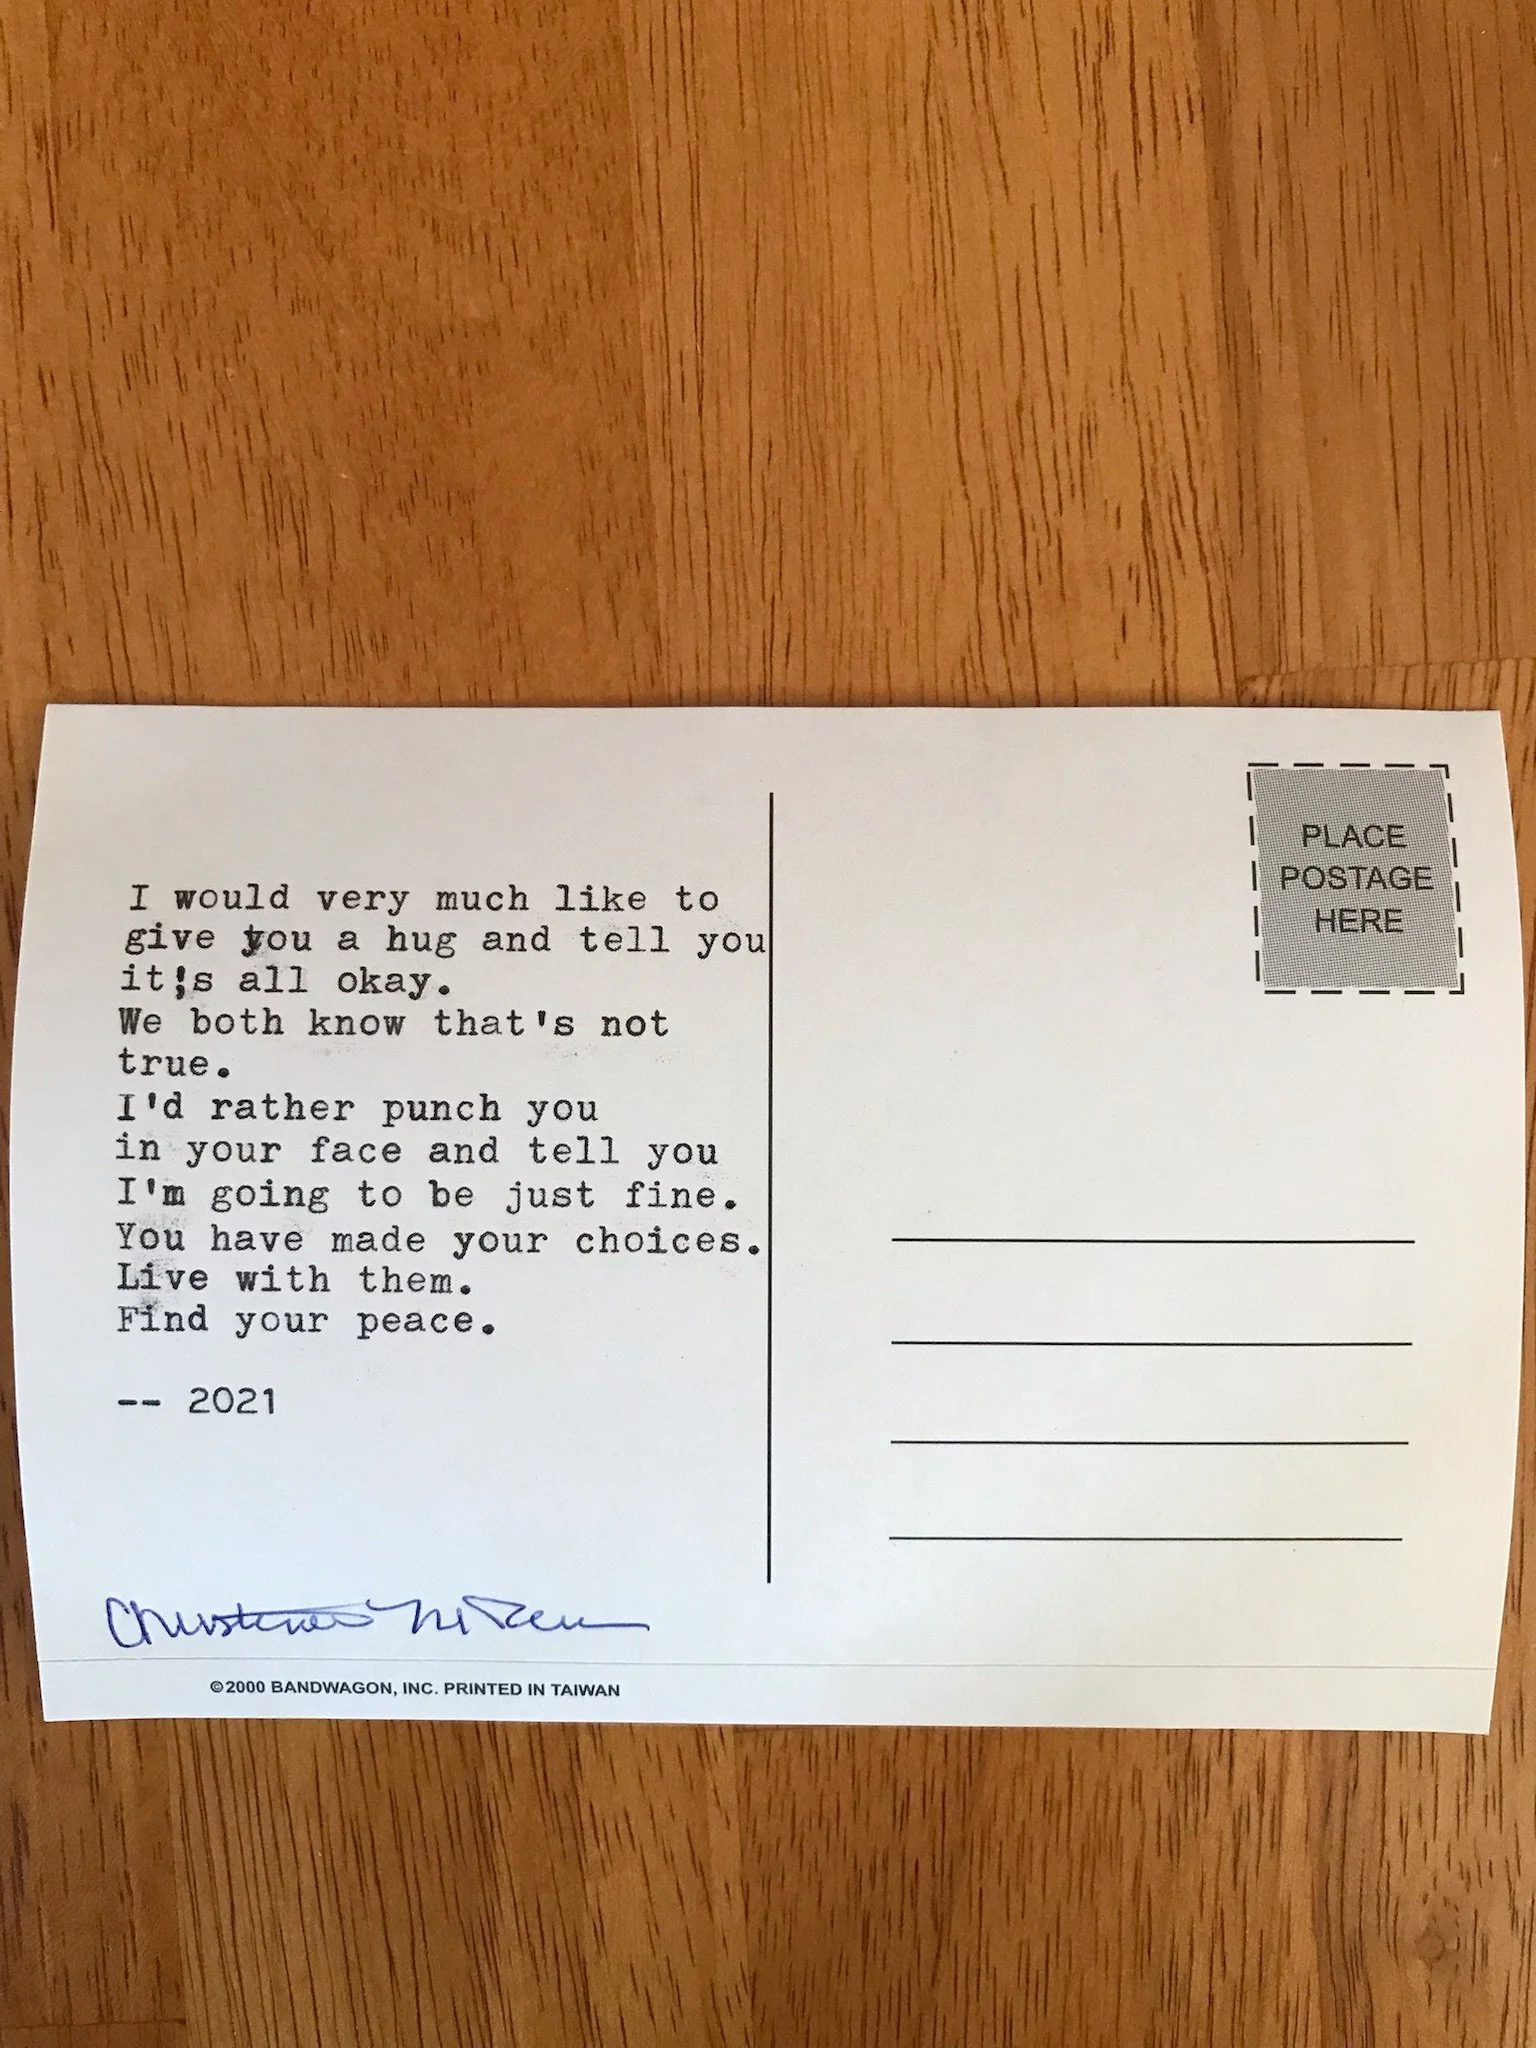 I would very much like to
give you a hug and tell you
it's all okay.
We both know that's not
true.
I'd rather punch you
in your face and tell you
I'm going to be just fine.
You have made your choices.
Live with them.
Find your peace.
-- 2021
PLACE
POSTAGE
HERE
©2000 BANDWAGON, INC. PRINTED IN TAIWAN